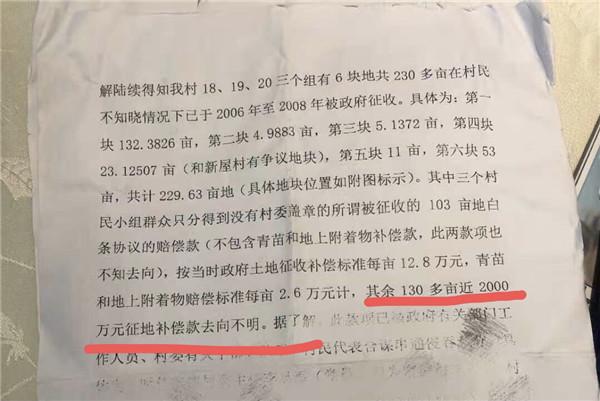 解陆续得知我村 18、19、20 三个组有 6 块地共 230 多亩在村民
不知晓情况下已于 2006 年至 2008 年被政府征收。具体为：第一
块 132.3826 亩，第二块 4.9883 亩，第三块 5.1372 亩，第四块
23.12507 亩（和新屋村有争议地块），第五块 11 亩，第六块 53
亩，共计 229.63 亩地（具体地块位置如附图标示）。其中三个村
民小组群众只分得到没有村委盖章的所谓被征收的 103 亩地白
条协议的赔偿款（不包含青苗和地上附着物补偿款，此两款项也
不知去向），按当时政府土地征收补偿标准每亩 12.8 万元，青苗
和地上附着物赔偿标准每亩 2.6 万元计，其余 130 多亩近 2000
万元征地补偿款去向不明。据了解，此款项已被政府有关部门工
作人员、村委有关干部 民代表合谋串通侵吞